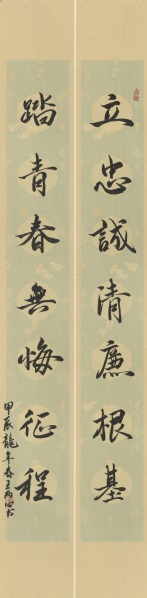 立忠誠清廉根基
踏青春無悔征程
甲辰龍年春王